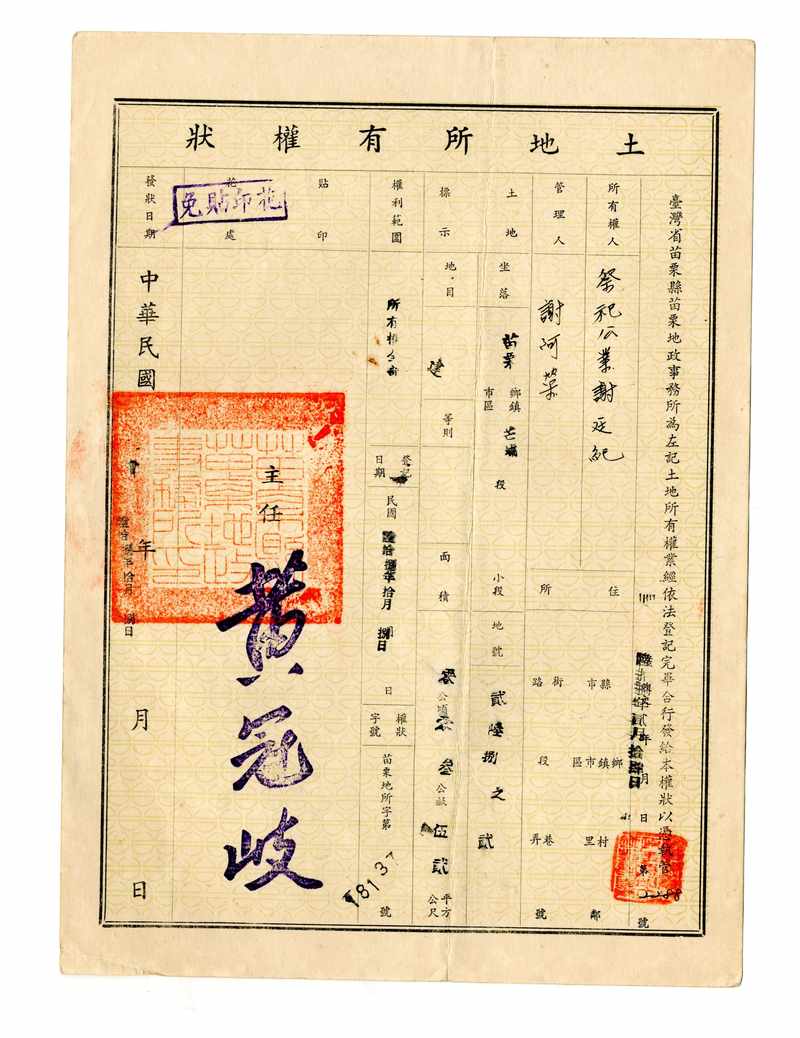 土地所有權狀
臺灣省苗栗縣苗栗地政事務所為左記土地所有權業經依法登記完畢合行發給本權狀以憑執管
年貳月拾肆日
第
號
所有權人
祭祀公業謝廷紀
住所
縣市
鄉鎮市區
村里
鄰
街路
段
巷弄
號
管理人
謝河榮
土地標示
坐落
苗栗
鄉鎮市區
芒埔
段
小段
地號
貳陸捌之貳
地目
建
等則
面積
零公頃零叁公畝伍貳平方公尺
權利範圍
所有權全部
登記日期
民國
拾月
捌日
日
權狀字號
苗栗地所字第
號
貼印花處
免貼印花
主任
黃冠岐
發狀日期
中華民國
年
拾月
捌日
月
日